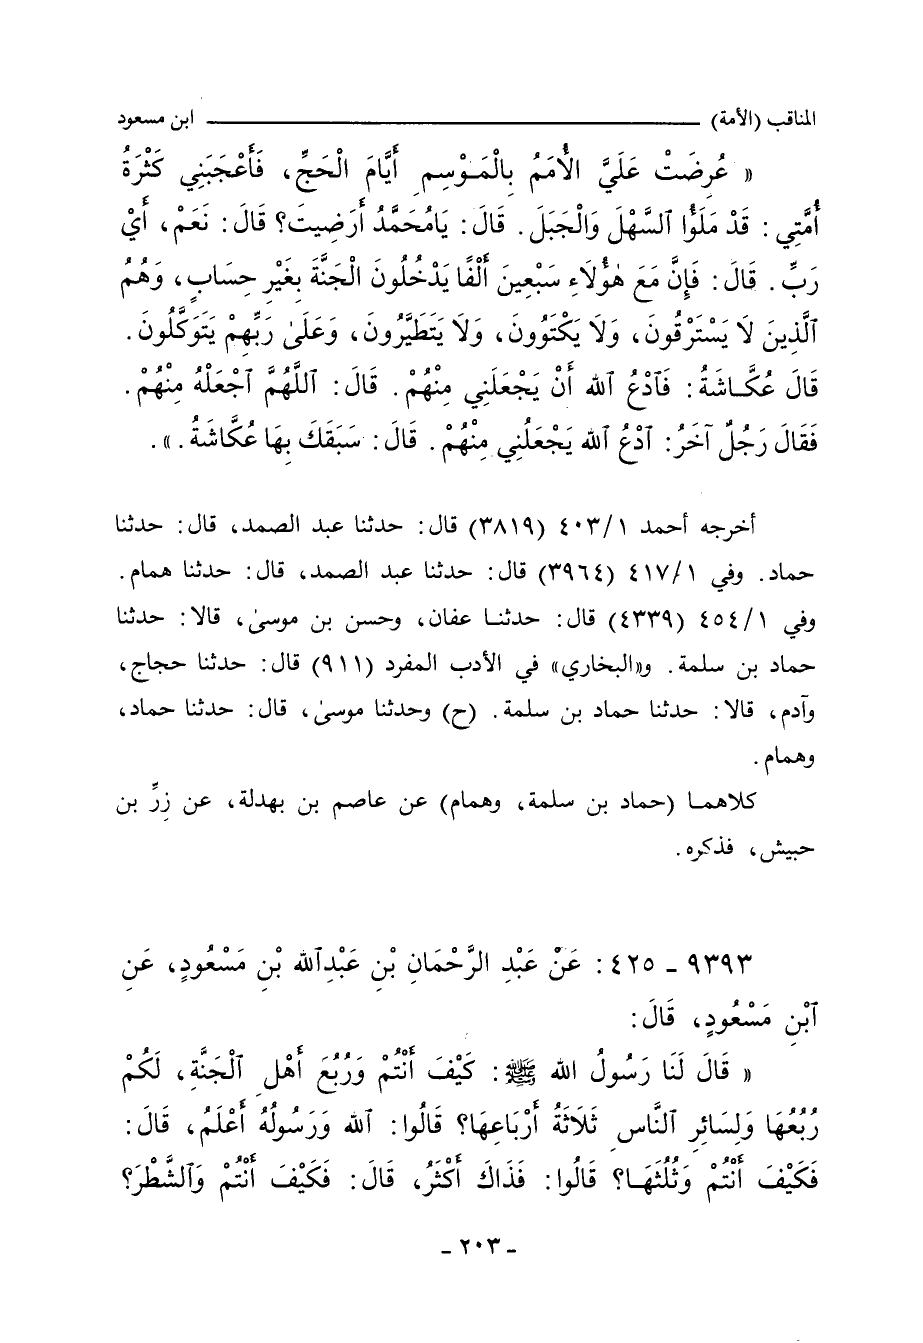 المناقب (الأمة) ــــــــــــــــــــــــــــــــ ابن مسعود
« عُرِضَتْ عَلَيَّ الْأُمَمُ بِالْمَوْسِمِ أَيَّامَ الْحَجِّ، فَأَعْجَبَنِي كَثْرَةُ
أُمَّتِي: قَدْ مَلَؤُا ٱلسَّهْلَ وَالْجَبَلَ. قَالَ: يَامُحَمَّدُ أَرَضِيتَ؟ قَالَ: نَعَمْ، أَيْ
رَبِّ. قَالَ: فَإِنَّ مَعَ هٰؤُلَاءِ سَبْعِينَ أَلْفًا يَدْخُلُونَ الْجَنَّةَ بِغَيْرِ حِسَابٍ، وَهُمُ
ٱلَّذِينَ لَا يَسْتَرْقُونَ، وَلَا يَكْتَوُونَ، وَلَا يَتَطَيَّرُونَ، وَعَلَىٰ رَبِّهِمْ يَتَوَكَّلُونَ.
قَالَ عُكَّاشَةُ: فَٱدْعُ ٱلله أَنْ يَجْعَلَنِي مِنْهُمْ. قَالَ: ٱللَّهُمَّ ٱجْعَلْهُ مِنْهُمْ.
فَقَالَ رَجُلٌ آخَرُ: ٱدْعُ ٱلله يَجْعَلُنِي مِنْهُمْ. قَالَ: سَبَقَكَ بِهَا عُكَّاشَةُ.».
أخرجه أحمد ٤٠٣/١ (٣٨١٩) قال: حدثنا عبد الصمد، قال: حدثنا
حماد. وفي ٤١٧/١ (٣٩٦٤) قال: حدثنا عبد الصمد، قال: حدثنا همام.
وفي ٤٥٤/١ (٤٣٣٩) قال: حدثنا عفان، وحسن بن موسىٰ، قالا: حدثنا
حماد بن سلمة. و«البخاري» في الأدب المفرد (٩١١) قال: حدثنا حجاج،
وآدم، قالا: حدثنا حماد بن سلمة. (ح) وحدثنا موسىٰ، قال: حدثنا حماد،
وهمام.
كلاهما (حماد بن سلمة، وهمام) عن عاصم بن بهدلة، عن زِرِّ بن
حبيش، فذكره.
٩٣٩٣ - ٤٢٥: عَنْ عَبْدِ الرَّحْمَانِ بْنِ عَبْدِٱلله بْنِ مَسْعُودٍ، عَنِ
ٱبْنِ مَسْعُودٍ، قَالَ:
« قَالَ لَنَا رَسُولُ ٱلله ﷺ: كَيْفَ أَنْتُمْ وَرُبُعَ أَهْلِ ٱلْجَنَّةِ، لَكُمْ
رُبُعُهَا وَلِسَائِرِ ٱلنَّاسِ ثَلَاثَةُ أَرْبَاعِهَا؟ قَالُوا: ٱلله وَرَسُولُهُ أَعْلَمُ، قَالَ:
فَكَيْفَ أَنْتُمْ وَثُلُثَهَا؟ قَالُوا: فَذَاكَ أَكْثَرُ، قَالَ: فَكَيْفَ أَنْتُمْ وَٱلشَّطْرَ؟
- ٢٠٣ -